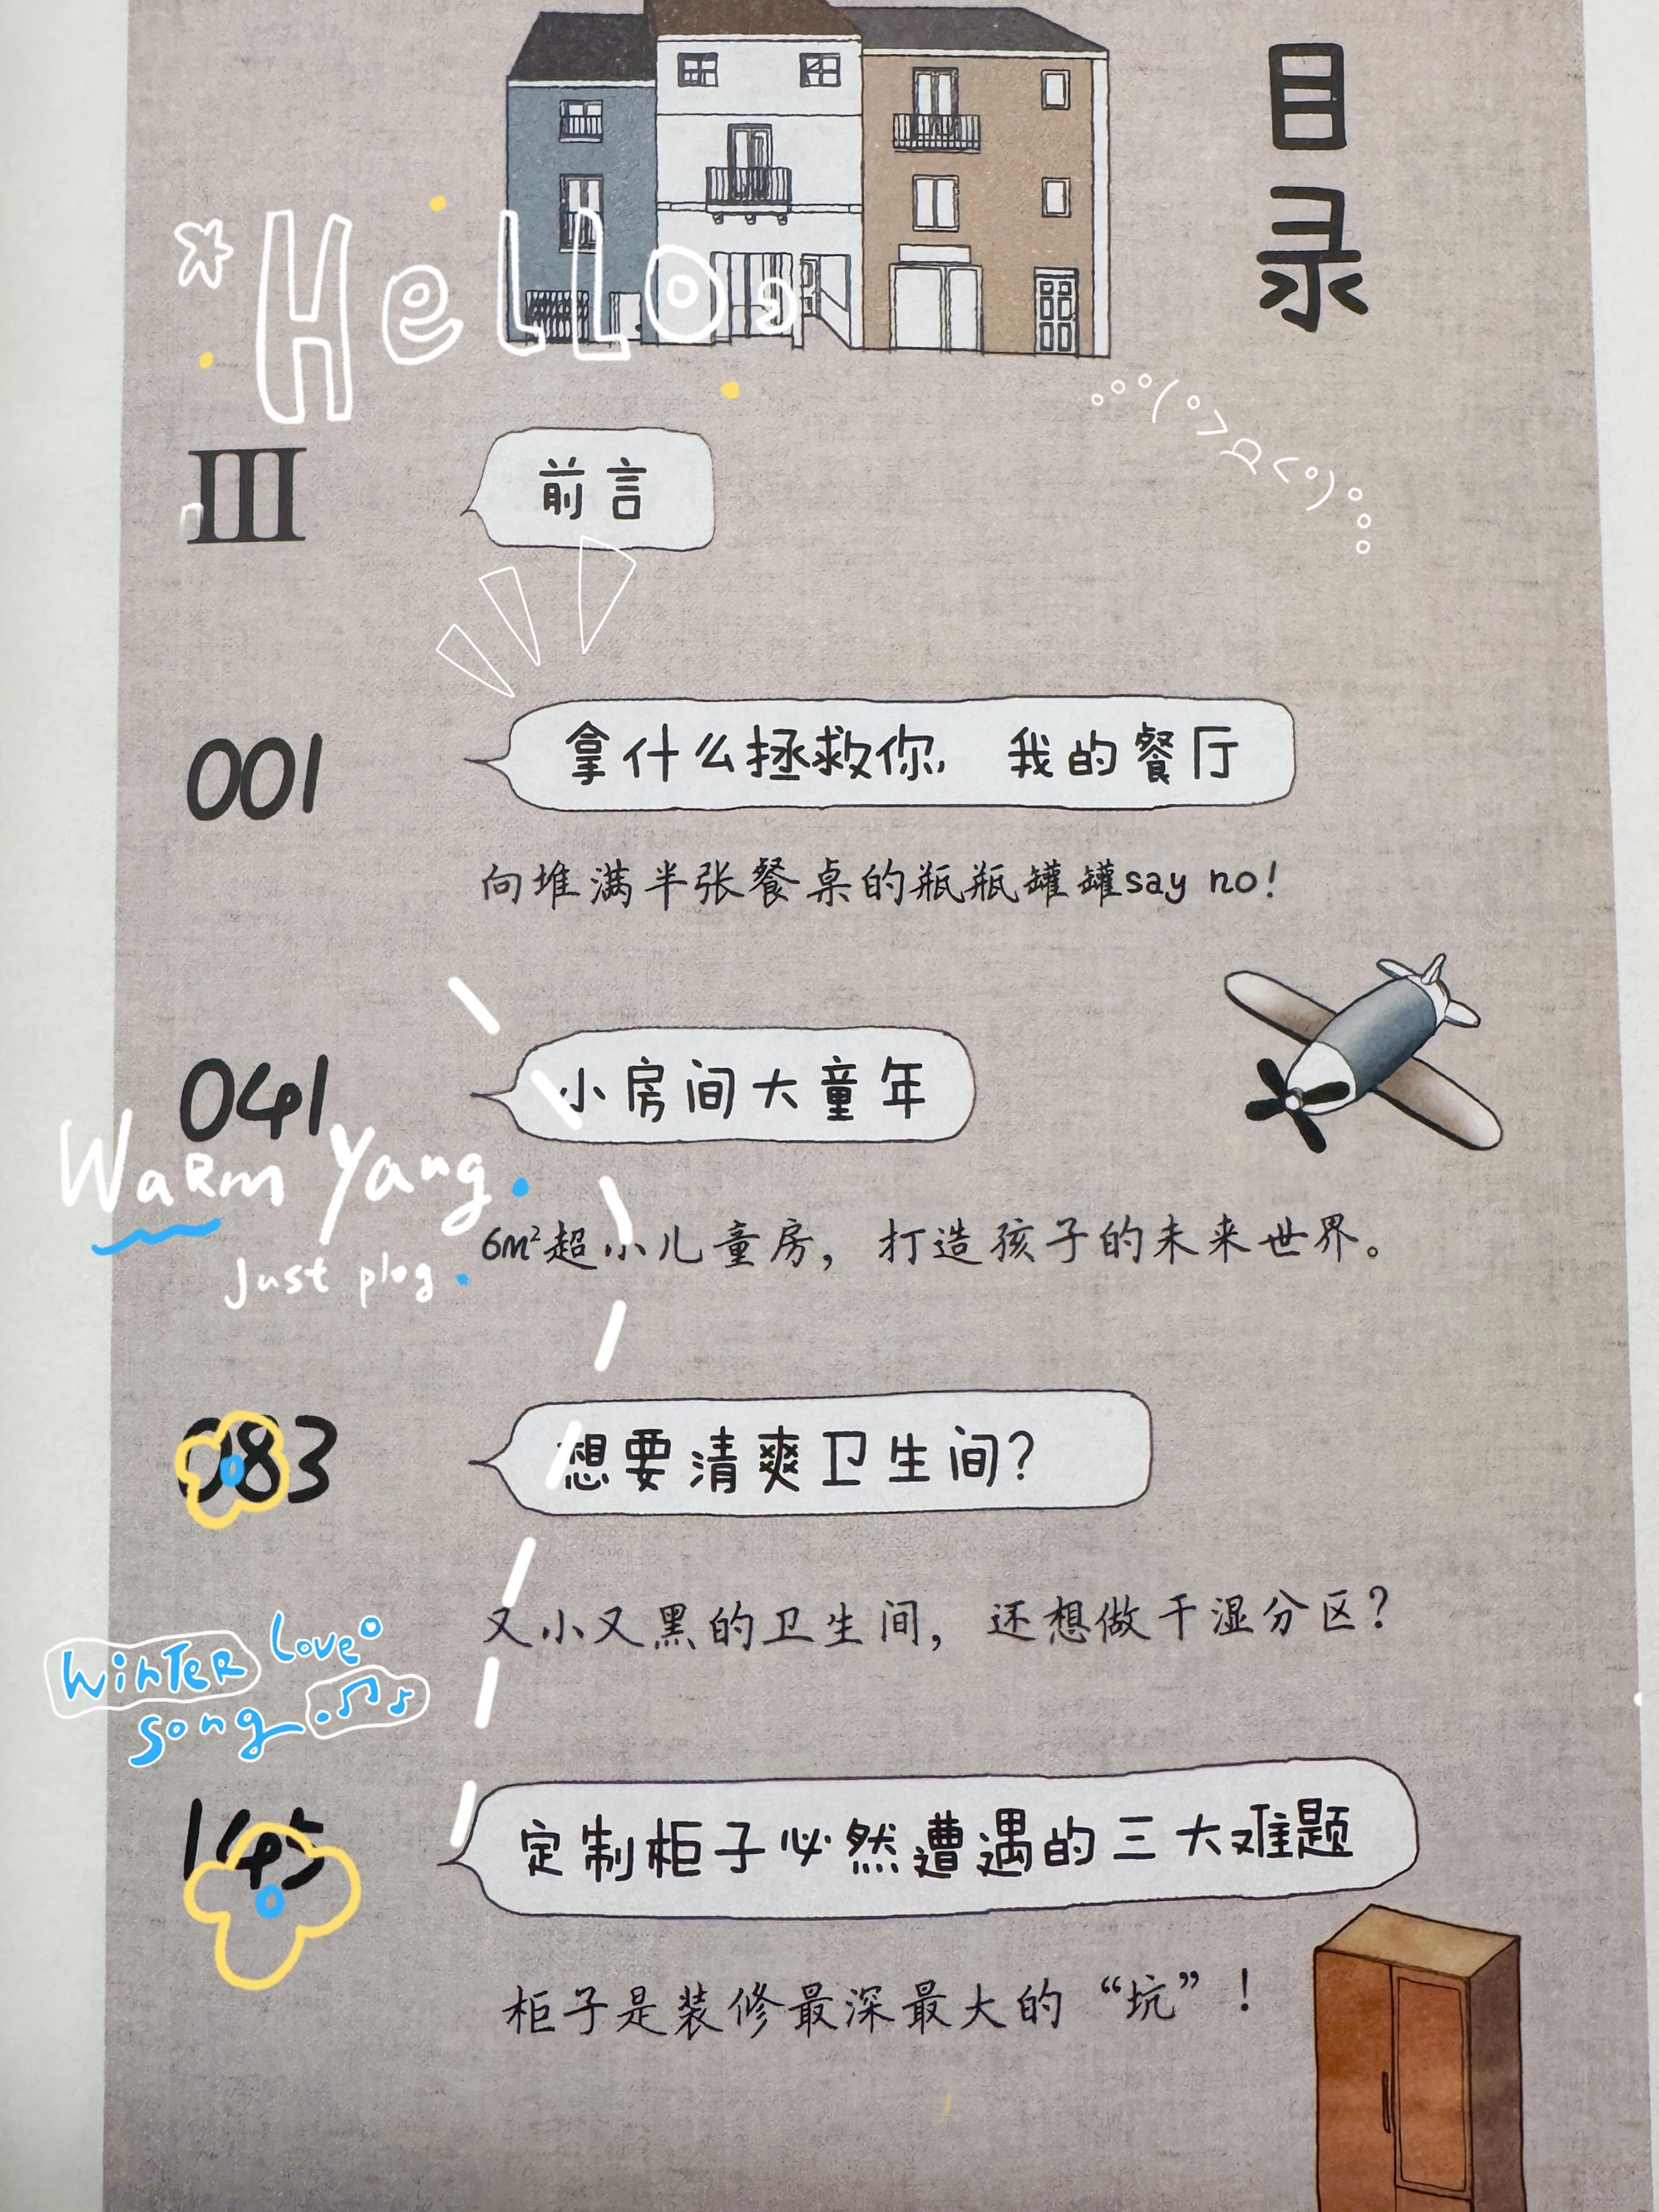 目录
Hello,
III
前言
001
拿什么拯救你，我的餐厅
向堆满半张餐桌的瓶瓶罐罐say no!
041
小房间大童年
Warm Yang.
6m²超小儿童房，打造孩子的未来世界。
Just plog.
083
想要清爽卫生间？
又小又黑的卫生间，还想做干湿分区？
Winter Love
song
145
定制柜子必然遭遇的三大难题
柜子是装修最深最大的“坑”！